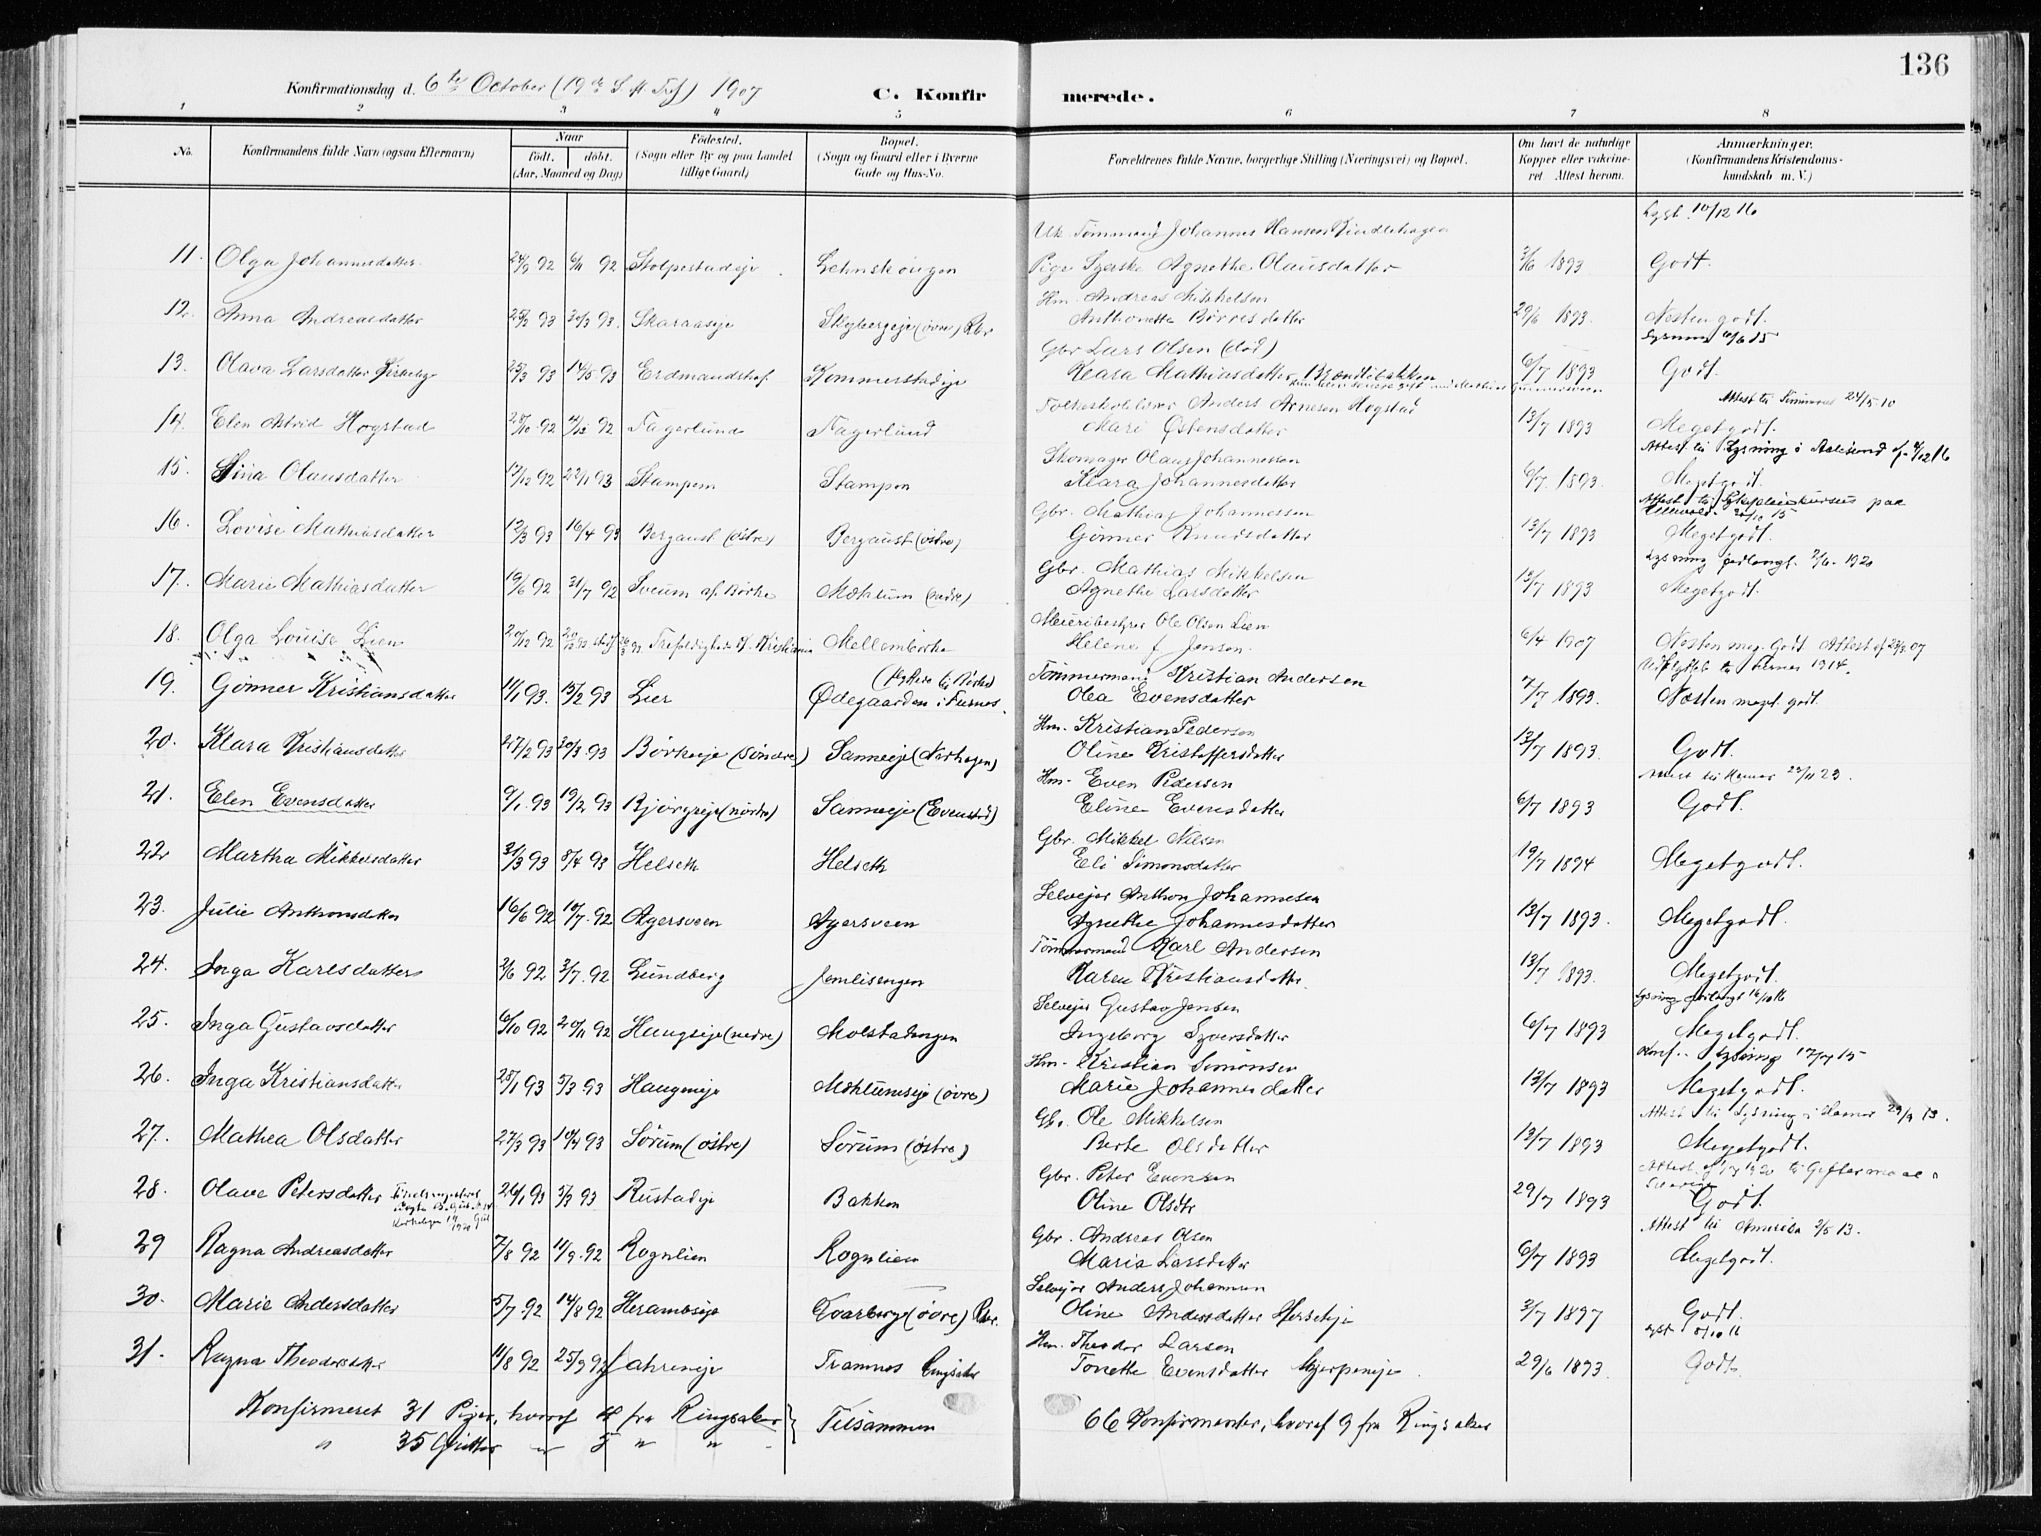 136
Konfirmationsdag d. 6te October (19de S. e. Tref) 1907 C. Konfir merede.
1 2 3 4 5 6 7 8
No. Konfirmandens fulde Navn (ogsaa Efternavn) Naar født. døbt. (Aar, Maaned og Dag) Fødested. (Sogn eller By og paa Landet tillige Gaard) Bopæl. (Sogn og Gaard eller i Byerne Gade og Hus-No. Forældrenes fulde Navne, borgerlige Stilling (Næringsvei) og Bopæl. Om havt de naturlige Kopper eller vakcineret Attest herom. Anmærkninger. (Konfirmandens Kristendomskundskab m. V.)
Lyst. 10/12 16
Uk. Tømmermand Johannes Hansen
11. Olga Johannesdatter 24/9 92 6/11 92 Stolpestadeje Pige Syerske Agnethe Olausdatter 3/6 1893 Godt.
Hm. Andreas Mikkelsen
12. Anna Andreasdatter 25/2 93 30/3 93. Skaraaseje Skybergeje (øvre) Rbr Anthonette Børresdatter 29/6 1893. Næsten godt.
Gbr Lars Olsen (død)
13. Olava Larsdatter 25/3 93 14/5 93 Erdmandshof Kommerstadeje Klara Mathiasdatter 6/7 1893 Godt.
Folkeskolelærer Anders Arnesen Hogstad Attest til Simenrud 24/5 10
14. Elen Astrid Hogstad 28/10 92 4/12 92 Fagerlund Fagerlund Mari Østensdatter 13/7 1893 Megetgodt.
Skomager Olaus Johannessen Attest til Lysning i Aalesund af 4/12 16
15. Stina Olausdatter 17/12 92 22/1 93 Stampen Stampen Klara Johannesdatter 6/7 1893. Megetgodt.
Gbr. Mathias Johannessen
16. Lovise Mathiasdatter 12/3 93 16/4 93 Bergaust (østre) Bergaust (østre) Gønner Knudsdatter 13/7 1893 Megetgodt.
Gbr. Mathias Mikkelsen Lysning forlangt. 2/6 1920
17. Marie Mathiasdatter 19/6 92 31/7 92 Sveum af Børke Mæhlum (nedre) Agnethe Larsdatter 13/7 1893 Megetgodt.
Meieribestyrer Ole Olsen Lien
18. Olga Louise Lien Trefoldigheds Kristiania Mellembørke Helene f Jensen. 6/4 1907 Næsten meg. Godt
Tømmermand Kristian Andersen Udflyttet til Furnes 1914.
19. Gønner Kristiansdatter 11/1 93. 15/2 93 Lier Ødegaarden i Furnes. Olea Evensdatter 7/7 1893. Næsten meget godt.
Hm. Kristian Pedersen
20. Klara Kristiansdatter 27/2 93 30/3 93 Børkeeje (søndre) Sanneeje (Nerhagen) Oline Kristoffersdatter 13/7 1893. Godt.
Hm. Even Pedersen Attest til Hamar 22/11 23.
21. Elen Evensdatter 9/1 93 19/2 93 Bjørgeeje (nørdre) Sanneeje (Evenstad) Eline Evensdatter 6/7 1893 Godt.
Gbr. Mikkel Nilsen
22 Martha Mikkelsdatter 31/3 93 8/4 93 Helseth Helseth Eli Simonsdatter 19/7 1894 Megetgodt.
Selveier Anthon Johannesen
23. Julie Anthonsdatter 16/6 92 10/7. 92 Agersveen Agersveen Agnethe Johannesdatter 13/7 1893. Megetgodt.
Tømmermand Karl Andersen
24. Inga Karlsdatter 2/6 92 3/7. 92 Lundberg Jemlisengen Karen Kristiansdatter 13/7 1893. Megetgodt.
Selveier Gustav Jensen Lysning forlangt 16/10 16
25. Inga Gustavsdatter 6/10 92 20/11 92 Haugseje (nedre) Molstadengen Ingeborg Syversdatter 6/7 1893 Megetgodt.
Hm. Kristian Simonsen Lysning 17/7 15
26. Inga Kristiansdatter 28/1 93 5/3 93 Haugeneje Mæhlumseje (øvre) Marie Johannesdatter 13/7 1893 Megetgodt.
Gbr. Ole Mikkelsen Attest til Lysning i Hamar 29/9 13.
27. Mathea Olsdatter 27/3 93 10/4 93 Sørum (østre) Sørum (østre) Berte Olsdatter 13/7 1893 Megetgodt.
Gbr. Peter Evensen
28. Olave Petersdatter 26/1 93 5/3 93 Rustadeje Bakken Oline Olsdtr 29/7 1893 Godt.
Gbr. Andreas Olsen Attest til Amerika 2/5 13.
29 Ragna Andreasdatter 7/8 92 11/9. 92 Rognlien Rognlien Maria Larsdatter 6/7 1893 Megetgodt.
Selveier Anders Johannesen
30. Marie Andersdatter 5/7. 92 14/8 92 Heramoseje Kvarberg (øvre) Rbr. Oline Andersdatter 3/7 1897 Godt.
Hm. Theodor Larsen
31. Ragna Theodorsdatter 11/8 92 25/9 92 Tramnes Ringsaker Tonette Evensdatter Skjerpeneje. 29/6 1893. Godt.
Konfirmeret 31 Piger, hvoraf 4 fra Ringsaker } Tilsammen 66 Konfirmanter, hvoraf 9 fra Ringsaker
" 35 Gutter " 5 " "